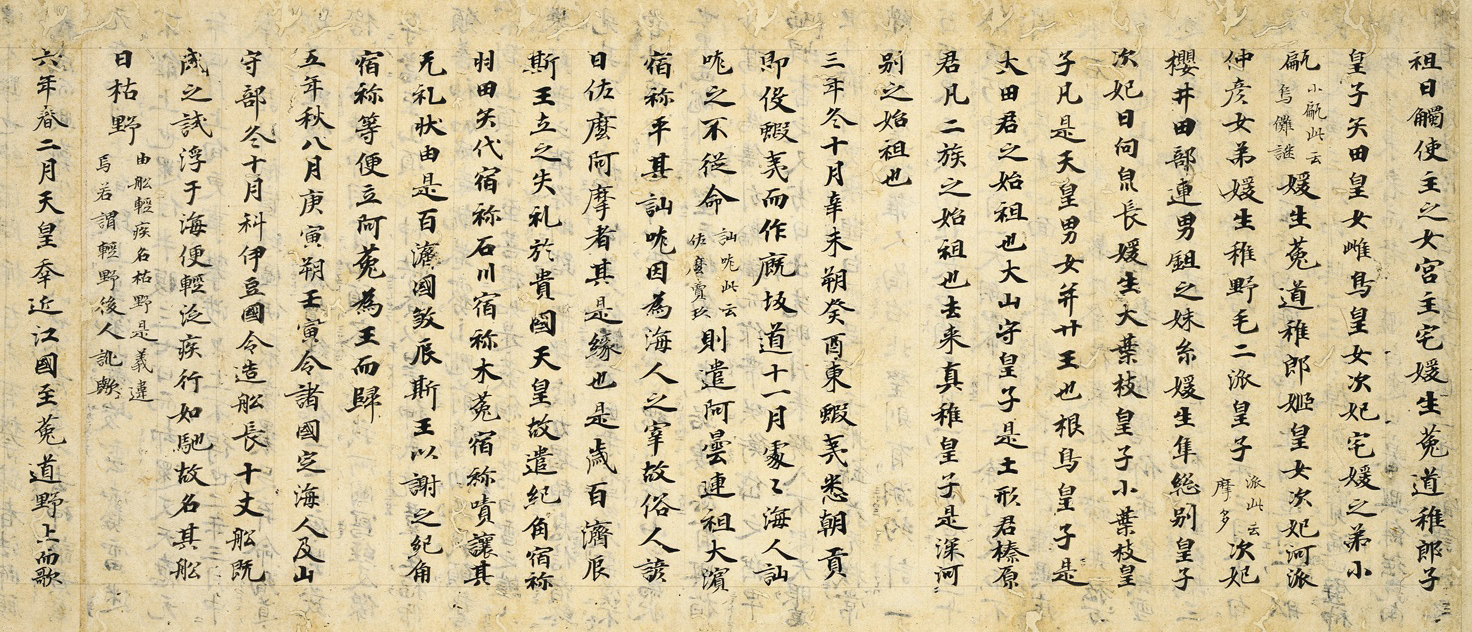 祖日觸使主之女宮主宅媛生菟道稚郎子
皇子矢田皇女雌鳥皇女次妃宅媛之弟小
甂小甂此云烏儺謎媛生菟道稚郎姫皇女次妃河派
仲彦女弟媛生稚野毛二派皇子派此云摩多次妃
櫻井田部連男鉏之妹糸媛生隼総别皇子
次妃日向泉長媛生大葉枝皇子小葉枝皇
子凡是天皇男女并廿王也根鳥皇子是
大田君之始祖也大山守皇子是土形君榛原
君凡二族之始祖也去来真稚皇子是深河
别之始祖也
三年冬十月辛未朔癸酉東蝦夷悉朝貢
即伇蝦夷而作厩坂道十一月處々海人訕
哤之不従命訕哤此云佐麼賣玖則遣阿曇連祖大濱
宿祢平其訕哤因為海人之宰故俗人諺
曰佐麼阿摩者其是縁也是歳百濟辰
斯王立之失礼於貴國天皇故遣紀角宿祢
羽田矢代宿祢石川宿祢木菟宿祢嘖讓其
无礼状由是百濟國敘辰斯王以謝之紀角
宿祢等便立阿菟為王而歸
五年秋八月庚寅朔壬寅令諸國定海人及山
守部冬十月科伊豆國令造舩長十丈舩既
成之試浮于海便輕泛疾行如馳故名其舩
曰枯野由舩輕疾名枯野是義違焉若謂輕野後人訛歟
六年春二月天皇幸近江國至菟道野上而歌